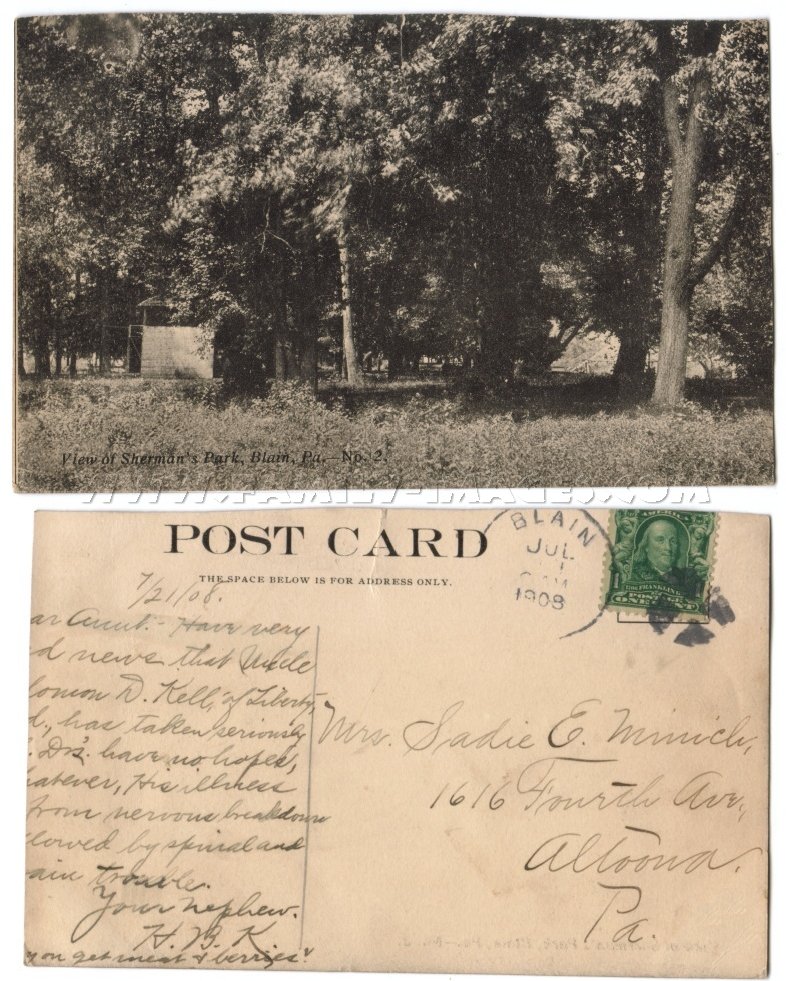 View of Sherman's Park, Blain, Pa.—No. 2.
WWW.FAMILY-IMAGES.COM
POST CARD
THE SPACE BELOW IS FOR ADDRESS ONLY.
BLAIN
JUL
1908
7/21/08.
ar Aunt:- Have very
d news that Uncle
lomon D. Kell, of Liberty,
d., has taken seriously
l. Drs. have no hopes,
hatever, His illness
from nervous breakdown
llowed by spinal and
ain trouble.
Your nephew.
H. B. K
you get meat & berries?
Mrs. Sadie E. Minich,
1616 Fourth Ave.,
Altoona.
Pa.
FRANKLIN
POSTAGE
ONE CENT